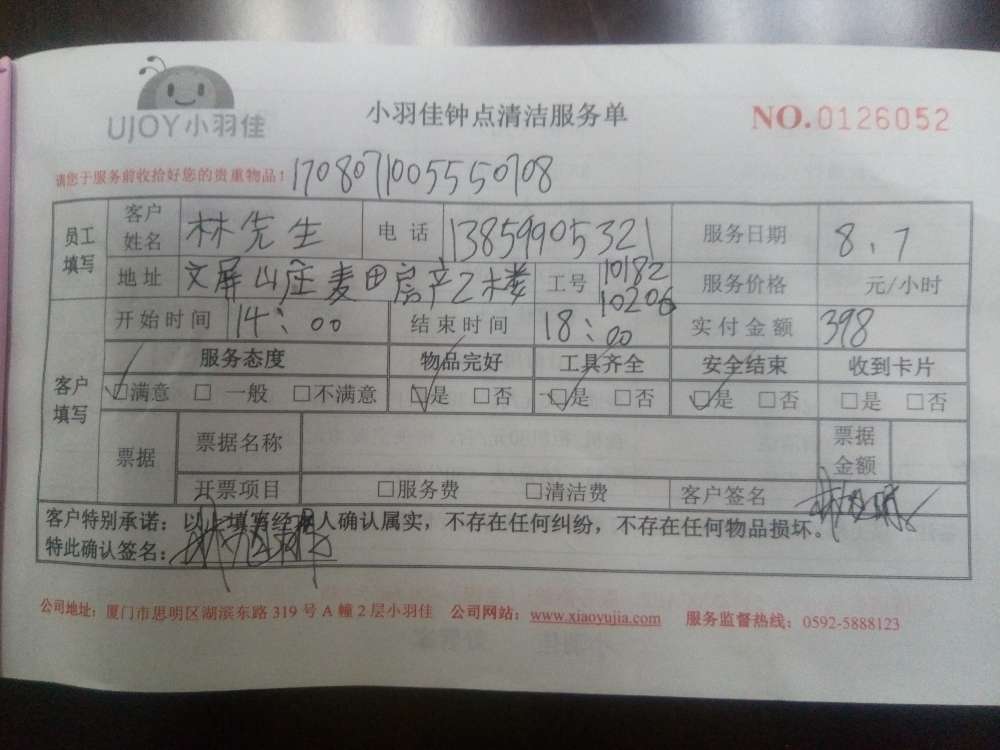 UJOY小羽佳
小羽佳钟点清洁服务单
NO.0126052
请您于服务前收拾好您的贵重物品！ 17080710055550708
员工填写 客户姓名 林先生 电话 13859905321 服务日期 8、7
地址 文屏山庄麦田房产2楼 工号 10182 10206 服务价格 元/小时
开始时间 14：00 结束时间 18：00 实付金额 398
客户填写 服务态度 物品完好 工具齐全 安全结束 收到卡片
☑满意 □一般 □不满意 ☑是 □否 ☑是 □否 ☑是 □否 □是 □否
票据 票据名称 票据金额
开票项目 □服务费 □清洁费 客户签名
客户特别承诺：以上填写经本人确认属实，不存在任何纠纷，不存在任何物品损坏。
特此确认签名：
公司地址：厦门市思明区湖滨东路319号A幢2层小羽佳 公司网站：www.xiaoyujia.com 服务监督热线：0592-5888123